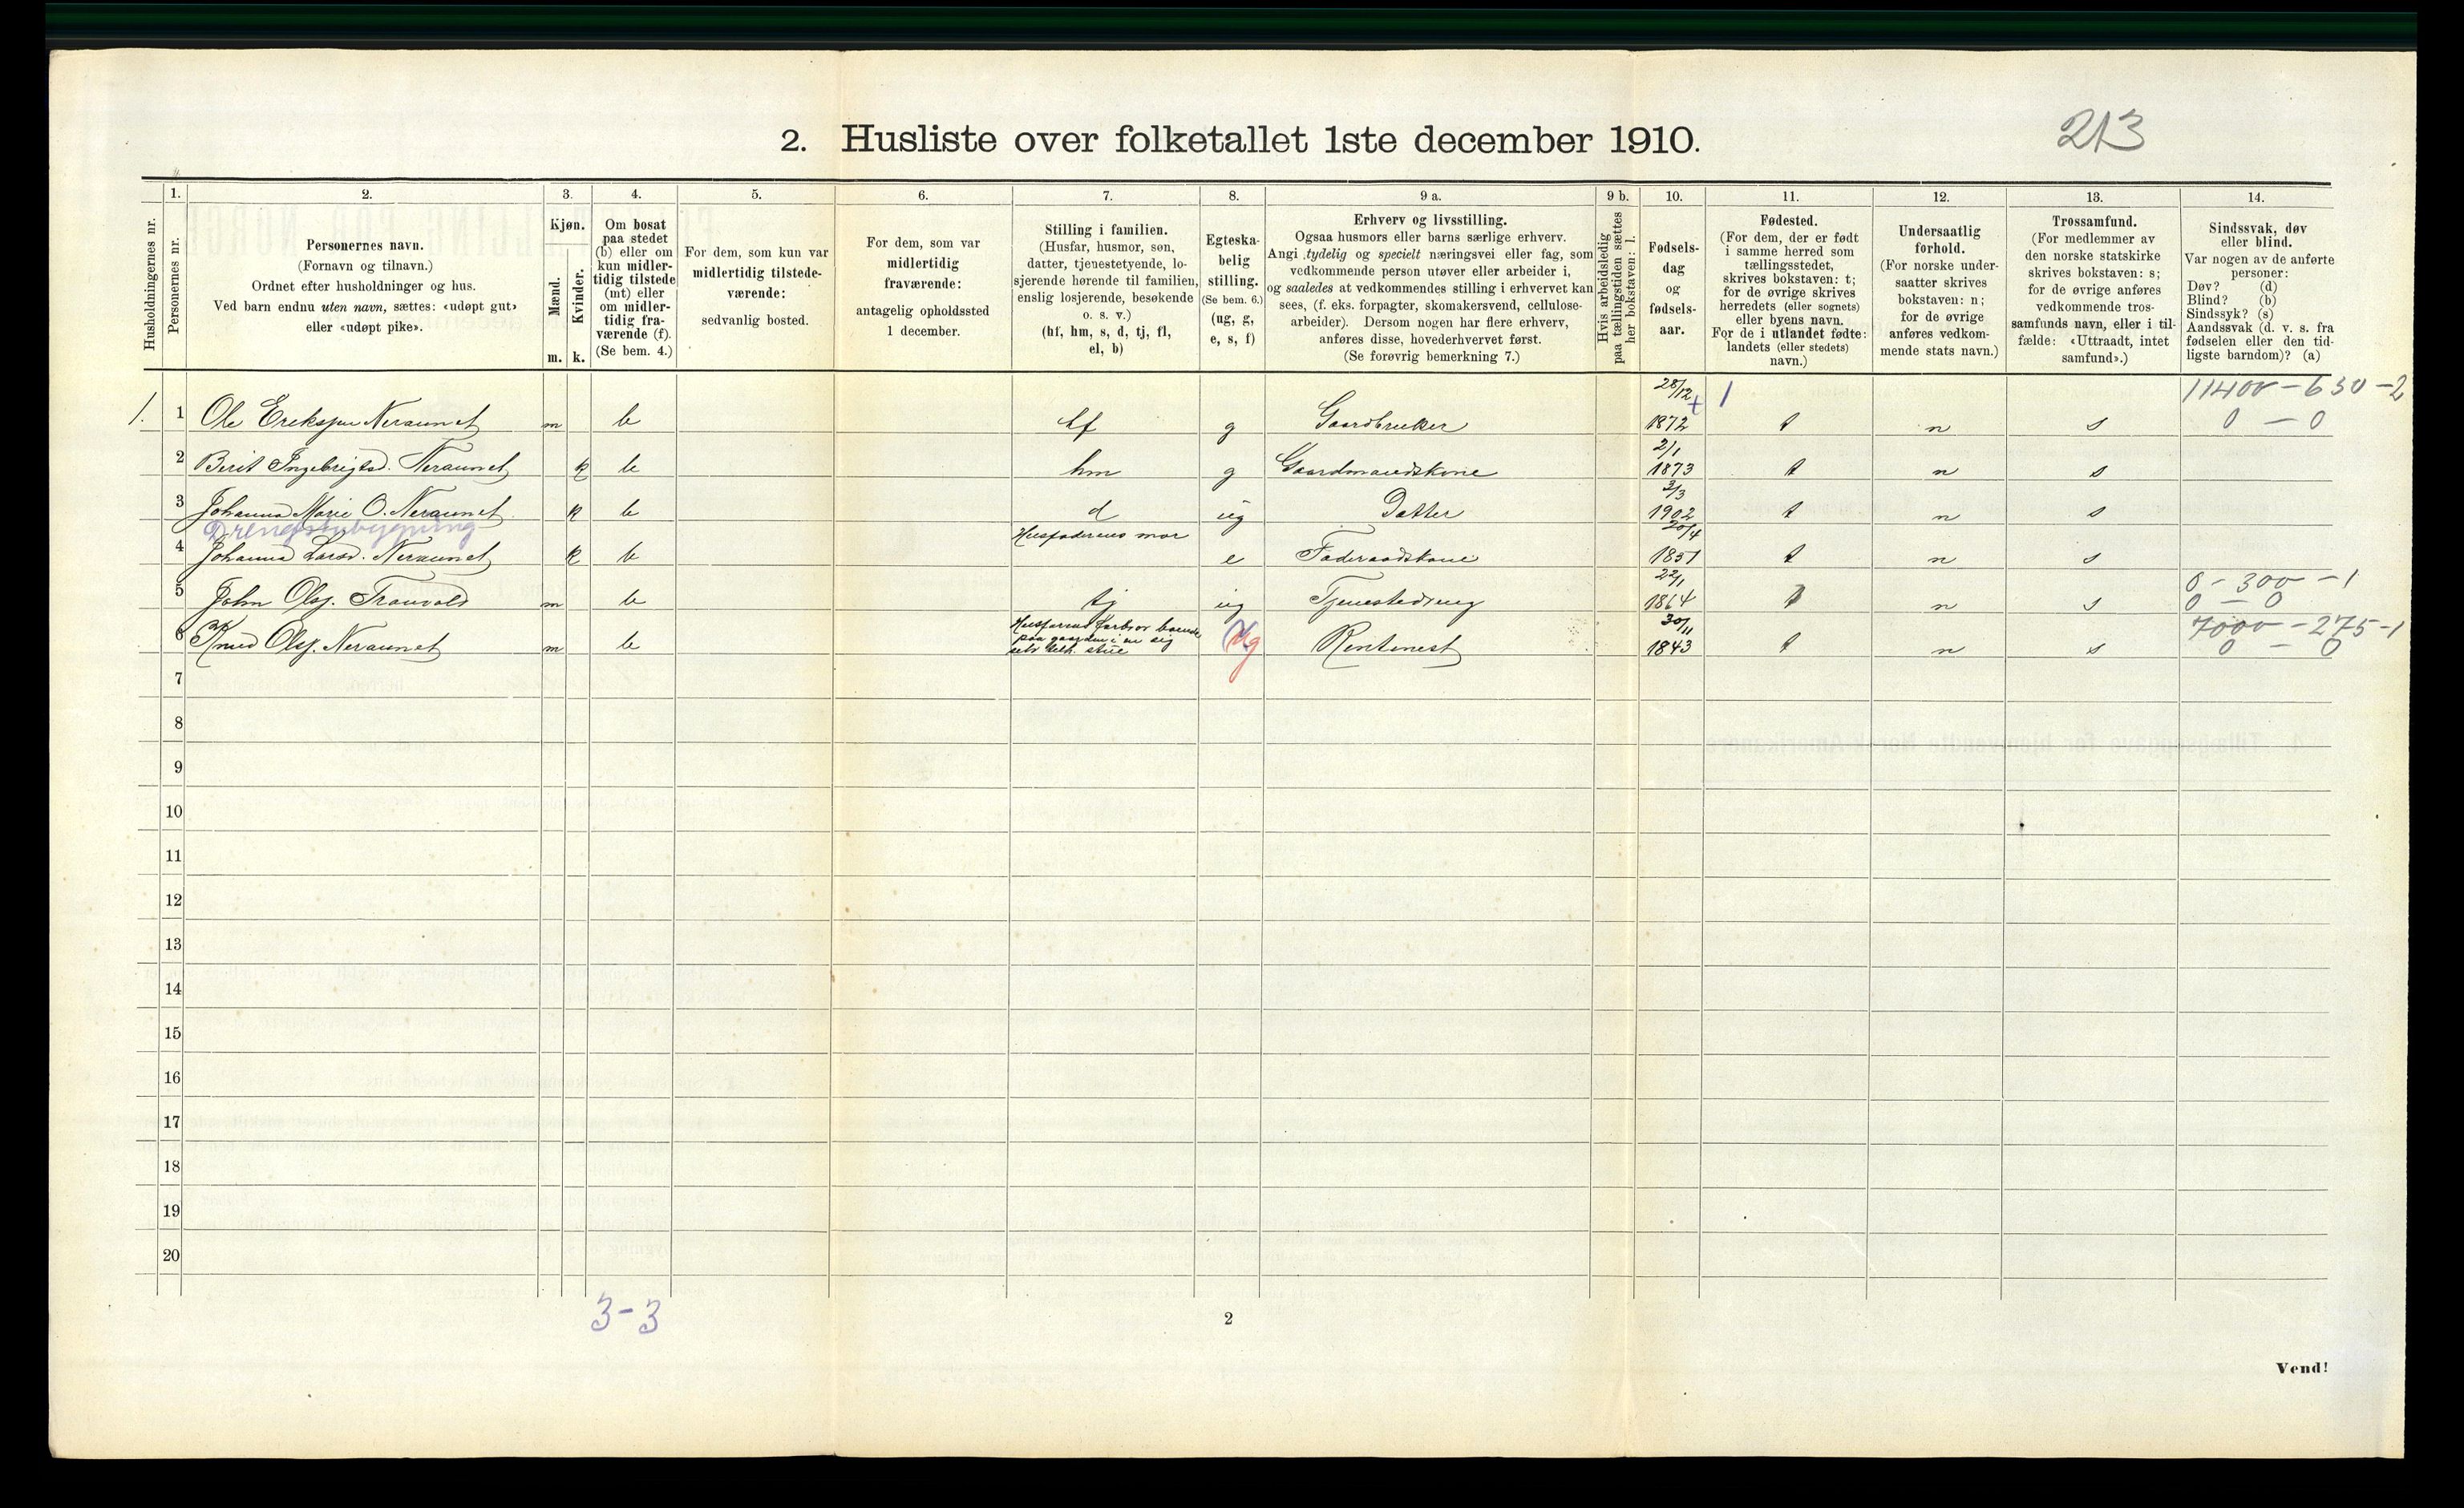 213
2. Husliste over folketallet 1ste december 1910.
1. 2. 3. 4. 5. 6. 7. 8. 9 a. 9 b. 10. 11. 12. 13. 14.
Husholdningernes nr.
Personernes nr.
Personernes navn.
(Fornavn og tilnavn.)
Ordnet efter husholdninger og hus.
Ved barn endnu uten navn, sættes: «udøpt gut»
eller «udøpt pike».
Kjøn.
Mænd.
Kvinder.
m. k.
Om bosat
paa stedet
(b) eller om
kun midler-
tidig tilstede
(mt) eller
om midler-
tidig fra-
værende (f).
(Se bem. 4.)
For dem, som kun var
midlertidig tilstede-
værende:
sedvanlig bosted.
For dem, som var
midlertidig
fraværende:
antagelig opholdssted
1 december.
Stilling i familien.
(Husfar, husmor, søn,
datter, tjenestetyende, lo-
sjerende hørende til familien,
enslig losjerende, besøkende
o. s. v.)
(hf, hm, s, d, tj, fl,
el, b)
Egteska-
belig
stilling.
(Se bem. 6.)
(ug, g,
e, s, f)
Erhverv og livsstilling.
Ogsaa husmors eller barns særlige erhverv.
Angi tydelig og specielt næringsvei eller fag, som
vedkommende person utøver eller arbeider i,
og saaledes at vedkommendes stilling i erhvervet kan
sees, (f. eks. forpagter, skomakersvend, cellulose-
arbeider). Dersom nogen har flere erhverv,
anføres disse, hovederhvervet først.
(Se forøvrig bemerkning 7.)
Hvis arbeidsledig
paa tællingstiden sættes
her bokstaven: l.
Fødsels-
dag
og
fødsels-
aar.
Fødested.
(For dem, der er født
i samme herred som
tællingsstedet,
skrives bokstaven: t;
for de øvrige skrives
herredets (eller sognets)
eller byens navn.
For de i utlandet fødte:
landets (eller stedets)
navn.)
Undersaatlig
forhold.
(For norske under-
saatter skrives
bokstaven: n;
for de øvrige
anføres vedkom-
mende stats navn.)
Trossamfund.
(For medlemmer av
den norske statskirke
skrives bokstaven: s;
for de øvrige anføres
vedkommende tros-
samfunds navn, eller i til-
fælde: «Uttraadt, intet
samfund».)
Sindssvak, døv
eller blind.
Var nogen av de anførte
personer:
Døv? (d)
Blind? (b)
Sindssyk? (s)
Aandssvak (d. v. s. fra
fødselen eller den tid-
ligste barndom)? (a)
28/12 1 11400 - 630 - 2
1. 1 Ole Erekssen Neraunet m b hf g Gaardbruker 1872 t n s 0 - 0
2/1
2 Berit Ingebrigtsd. Neraunet k b hm g Gaardmandskone 1873 t n s
3/3
3 Johanna Marie O. Neraunet k b d ug Datter 1902 t n s
Husfaderens mor 20/4
4 Johanna Larsd. Neraunet k b e Føderaadskone 1851 t n s
22/1 0 - 300 - 1
5 John Olsz. Tranvold m b tj ug Tjenestedreng 1864 t n s 0 - 0
30/11 7000 - 275 - 1
6 Knud Olsz. Neraunet m b ug Rentenest 1843 t n s 0 - 0
7
8
9
10
11
12
13
14
15
16
17
18
19
20
3 - 3
2
Vend!